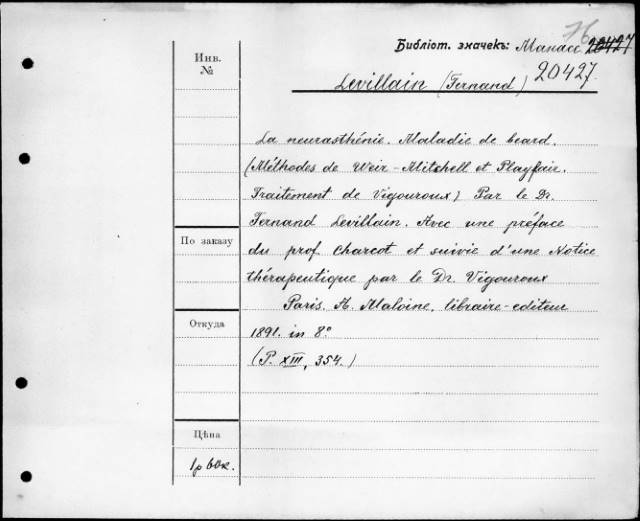 Библіот. значекъ: Манасс 20427
20427.
Levillain (Fernand)
Инв.
№
La neurasthénie. Maladie de beard.
(Méthodes de Weir-Mitchell et Playfair.
Traitement de Vigouroux) Par le Dr.
Fernand Levillain. Avec une préface
du prof. Charcot et suivie d'une Notice
thérapeutique par le Dr. Vigouroux
Paris. A. Maloine, libraire-editeur
1891. in 8°
(P. XIII, 354.)
По заказу
Откуда
Цѣна
1р 60к.